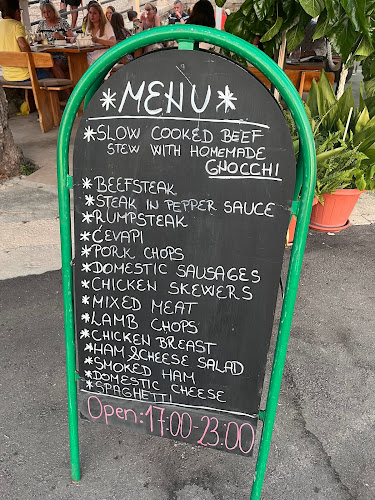 *MENU*
*SLOW COOKED BEEF
STEW WITH HOMEMADE
GNOCCHI
*BEEFSTEAK
*STEAK IN PEPPER SAUCE
*RUMPSTEAK
*ĆEVAPI
*PORK CHOPS
*DOMESTIC SAUSAGES
*CHICKEN SKEWERS
*MIXED MEAT
*LAMB CHOPS
*CHICKEN BREAST
*HAM & CHEESE SALAD
*SMOKED HAM
*DOMESTIC CHEESE
*SPAGHETTI
Open: 17:00-23:00